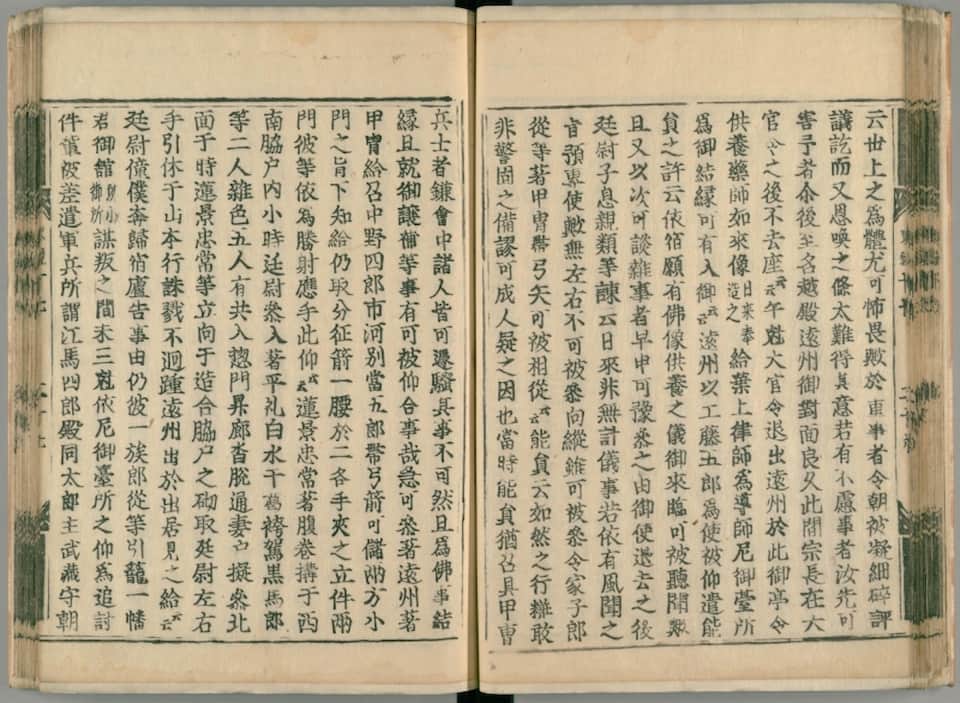 云世上之爲體尤可怖畏歟於重事者令朝被凝細碎評
議訖而又愚喚之條太難得其意若有不慮事者汝先可
害予者余後至名越殿遠州御對面良久此間宗長在大
官令之後不去座云々午尅大官令退出遠州於此御亭令
供養藥師如來像日來奉造之給葉上律師爲導師尼御臺所
爲御結縁可有入御云々遠州以工藤五郎爲使被仰遣能
員之許云依宿願有佛像供養之儀御來臨可被聽聞歟
且又以次可談雜事者早申可豫參之由御使退去之後
廷尉子息親類等諫云日來非無計儀事若依有風聞之
旨預專使歟無左右不可被參向縱雖可被參令家子郎
從等著甲冑帶弓矢可被相從云々能員云如然之行粧敢
非警固之備謬可成人疑之因也當時能員猶召具甲冑
兵士者鎌會中諸人皆可遽騒其事不可然且爲佛事結
縁且就御讓補等事有可被仰合事哉忩可參者遠州著
甲冑給召中野四郎市河別當五郎帶弓箭可儲兩方小
門之旨下知給仍取分征箭一腰於二各手夾之立件兩
門彼等依爲勝射應手此仰云々蓮景忠常著腹巻搆于西
南脇戸内小時廷尉參入著平礼白水干葛袴駕黒馬郎
等二人雜色五人有共入惣門昇廊沓脱通妻戸擬參北
面于時蓮景忠常等立向于造合脇戸之砌取廷尉左右
手引伏于山本行誅戮不廻踵遠州出於出居見之給云々
廷尉僮僕奔歸宿廬告事由仍彼一族郎從等引籠一幡
君御舘号小御所謀叛之間未三尅依尼御臺所之仰爲追討
件輩被差遣軍兵所謂江馬四郎殿同太郎主武藏守朝